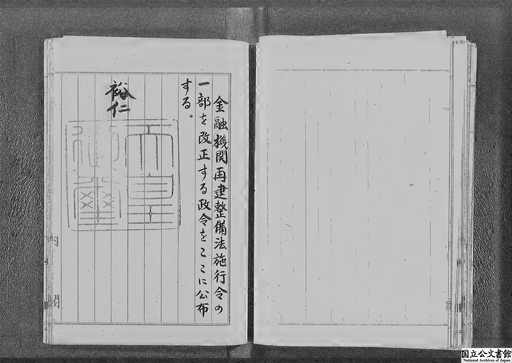 金融機関再建整備法施行令の
一部を改正する政令をここに公布
する。
裕仁
天皇
御璽
内閣
国立公文書館
National Archives of Japan